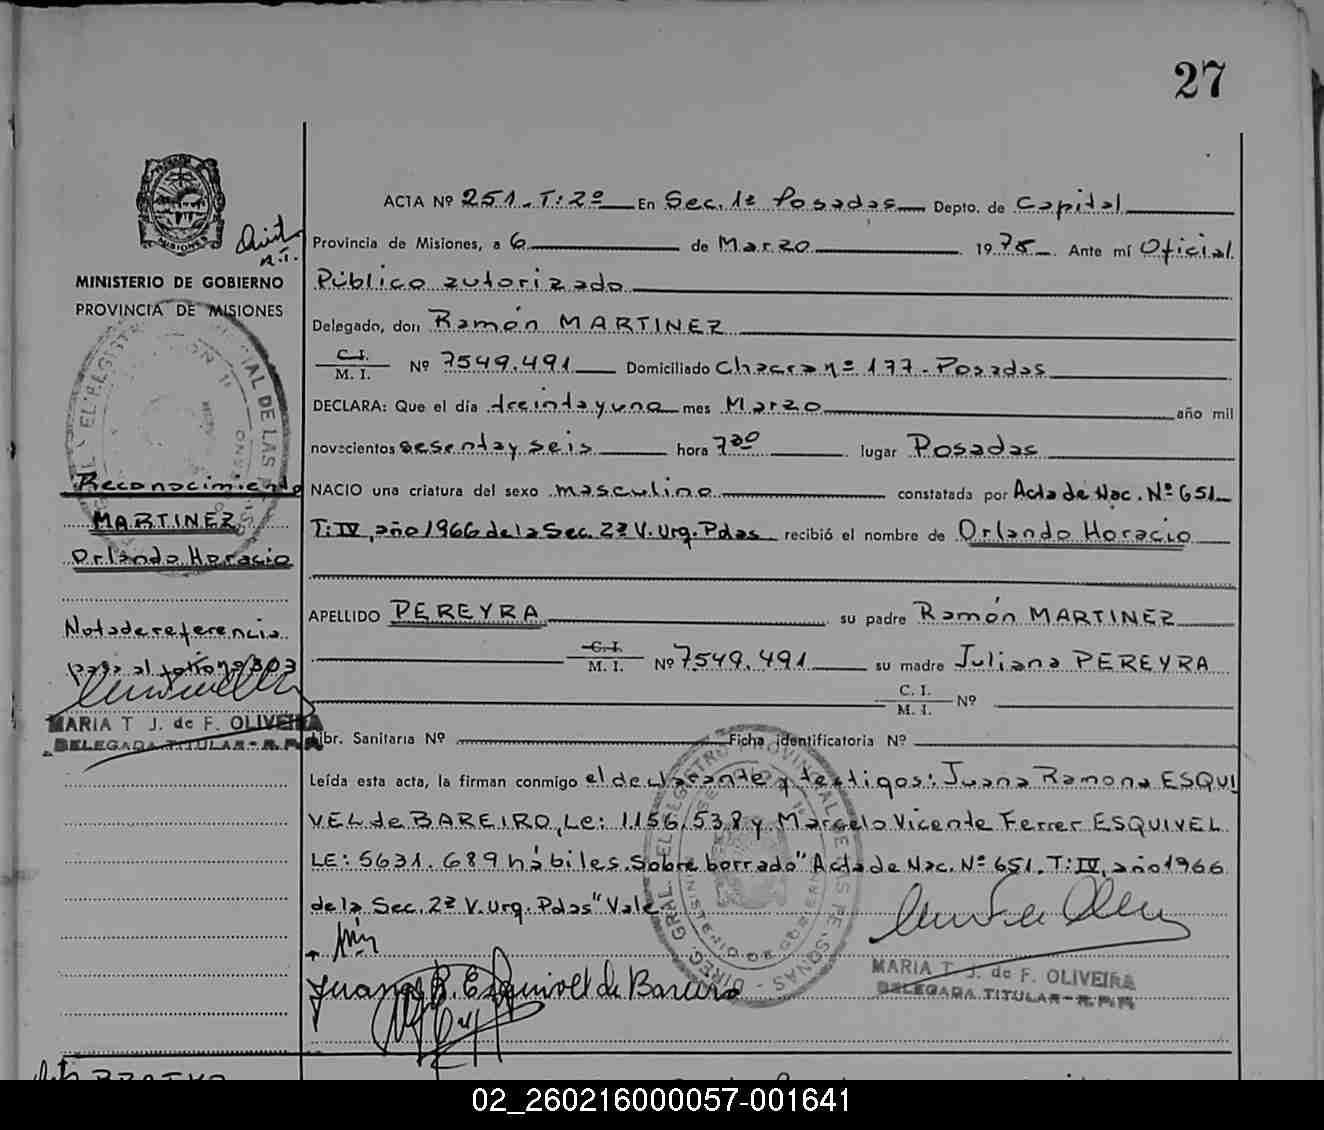 27
MISIONES
MINISTERIO DE GOBIERNO
PROVINCIA DE MISIONES
Reconocimiento
MARTINEZ
Orlando Horacio
Nota de referencia
para al folio nº 303
MARIA T J. de F. OLIVEIRA
DELEGADA TITULAR - R.P.P.
ACTA Nº 251. T: 2º En Sec. 1ª Posadas Depto. de Capital
Provincia de Misiones, a 6 de Marzo 1975. Ante mí Oficial
Público autorizado
Delegado, don Ramón MARTINEZ
C.I.
M. I. Nº 7549.491 Domiciliado Chacra nº 177 - Posadas
DECLARA: Que el día treinta y uno mes Marzo año mil
novecientos sesenta y seis hora 7³⁰ lugar Posadas
NACIO una criatura del sexo masculino constatada por Acta de Nac. Nº 651
T: IV, año 1966 de la Sec. 2ª V. Urq. Pdas recibió el nombre de Orlando Horacio
APELLIDO PEREYRA su padre Ramón MARTINEZ
C.I.
M. I. Nº 7549.491 su madre Juliana PEREYRA
C. I.
M. I. Nº
Libr. Sanitaria Nº Ficha identificatoria Nº
Leída esta acta, la firman conmigo el declarante y testigos: Juana Ramona ESQUI
VEL de BAREIRO, LC: 1.156.538 y Marcelo Vicente Ferrer ESQUIVEL
LE: 5631.689 hábiles. Sobre borrado "Acta de Nac. Nº 651. T: IV, año 1966
de la Sec. 2ª V. Urq. Pdas" Vale
Juana R. Esquivel de Bareiro
MARIA T. J. de F. OLIVEIRA
DELEGADA TITULAR - R.P.P.
02_260216000057-001641